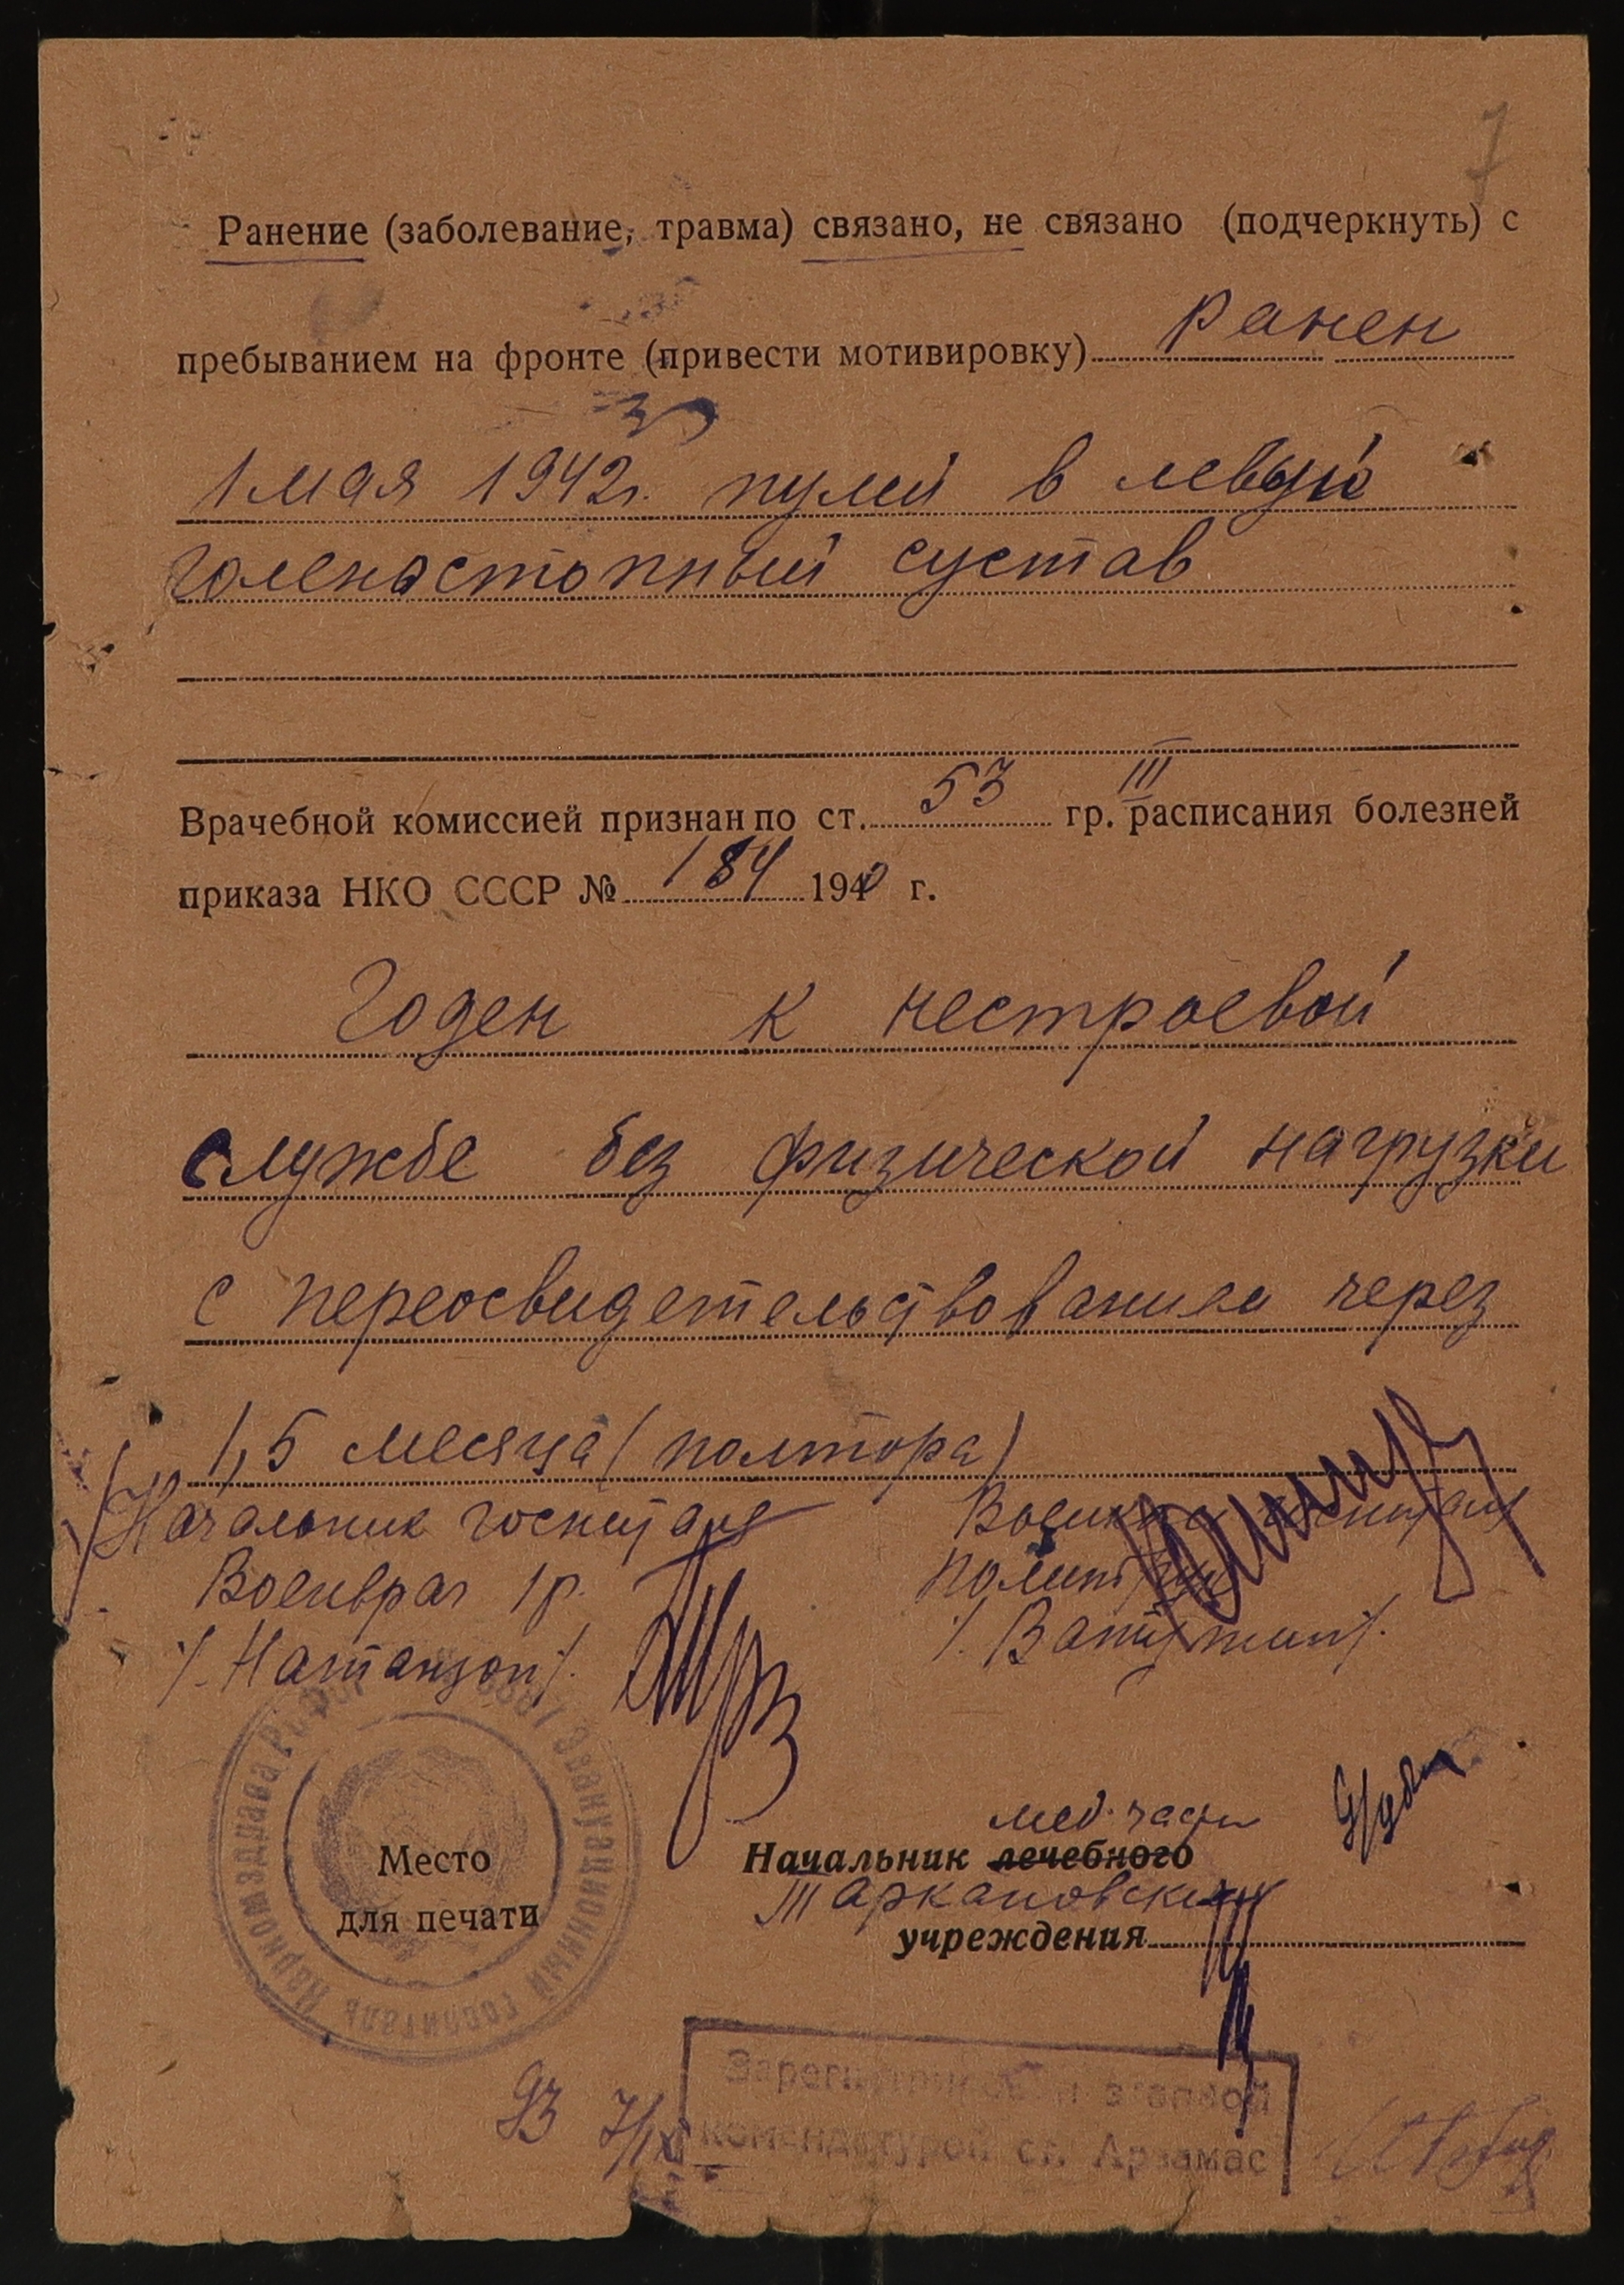 7
Ранение (заболевание, травма) связано, не связано (подчеркнуть) с
пребыванием на фронте (привести мотивировку) ранен
1 мая 1942г. пулей в левый
голеностопный сустав
Врачебной комиссией признан по ст. 53 гр. III расписания болезней
приказа НКО СССР № 184 1940 г.
Годен к нестроевой
службе без физической нагрузки
с переосвидетельствованием через
1,5 месяца (полтора)
Начальник госпиталя Военком госпиталя
Военврач 1 р. политрук
/. Натанзон /. /. Ватутин /.
Наркомздрава эвакуационный госпиталь
Место
для печати
мед. части
Начальник лечебного
Таркановский
учреждения
93 7/IX
Зарегистрирован этапной
комендатурой ст. Арзамас